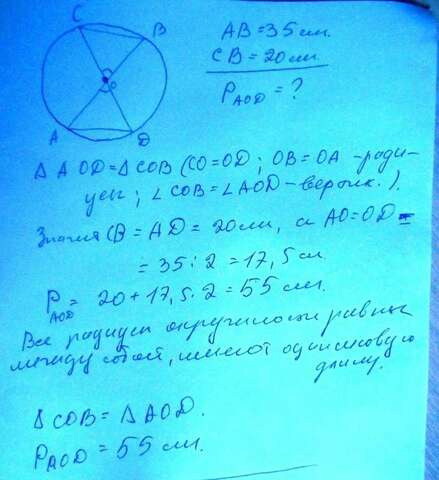 C
B
O
A
D
AB = 35 см.
CB = 20 см.
P AOD = ?
Δ AOD = Δ COB (CO = OD; OB = OA - ради-
усы; ∠ COB = ∠ AOD - вертик.).
Значит CB = AD = 20 см, а AO = OD =
= 35 : 2 = 17,5 см.
P AOD = 20 + 17,5 · 2 = 55 см.
Все радиусы окружности равны
между собой, имеют одинаковую
длину.
Δ COB = Δ AOD.
P AOD = 55 см.